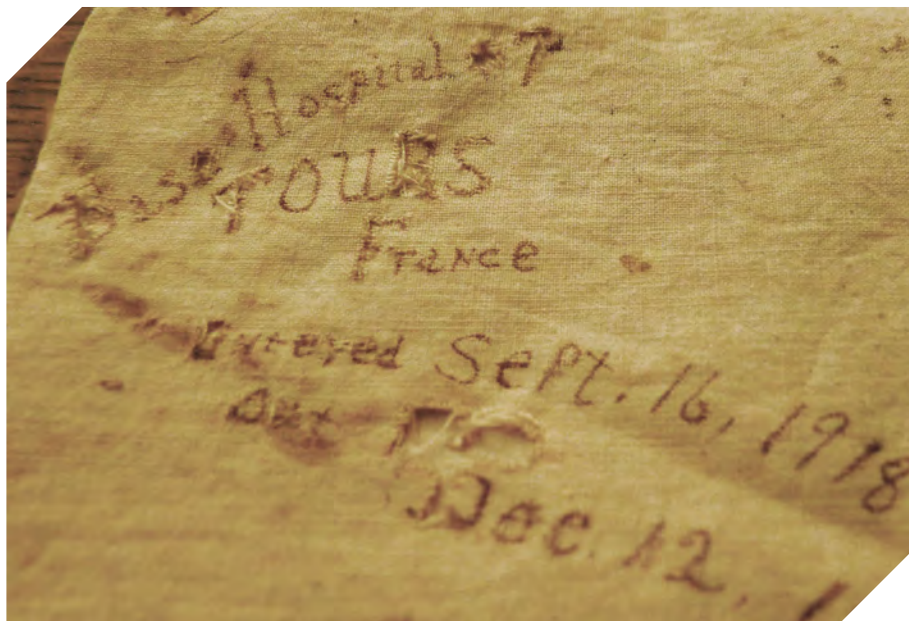 Base Hospital #7
TOURS
France
Entered Sept. 16, 1918
Out
Dec. 12, 1